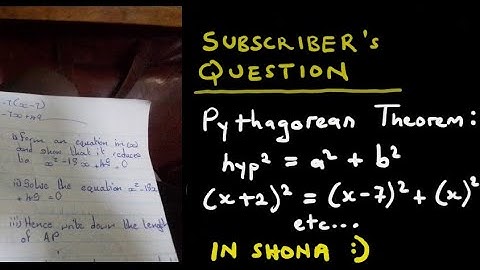 -7(x-7)
-7x+49
i) Form an equation in (x)
and show that it reduces
to x²-18x+45=0
ii) Solve the equation x²-18x
+45=0
iii) Hence write down the length
of AP
SUBSCRIBER's
QUESTION
Pythagorean Theorem:
hyp² = a² + b²
(x+2)² = (x-7)² + (x)²
etc...
IN SHONA :)